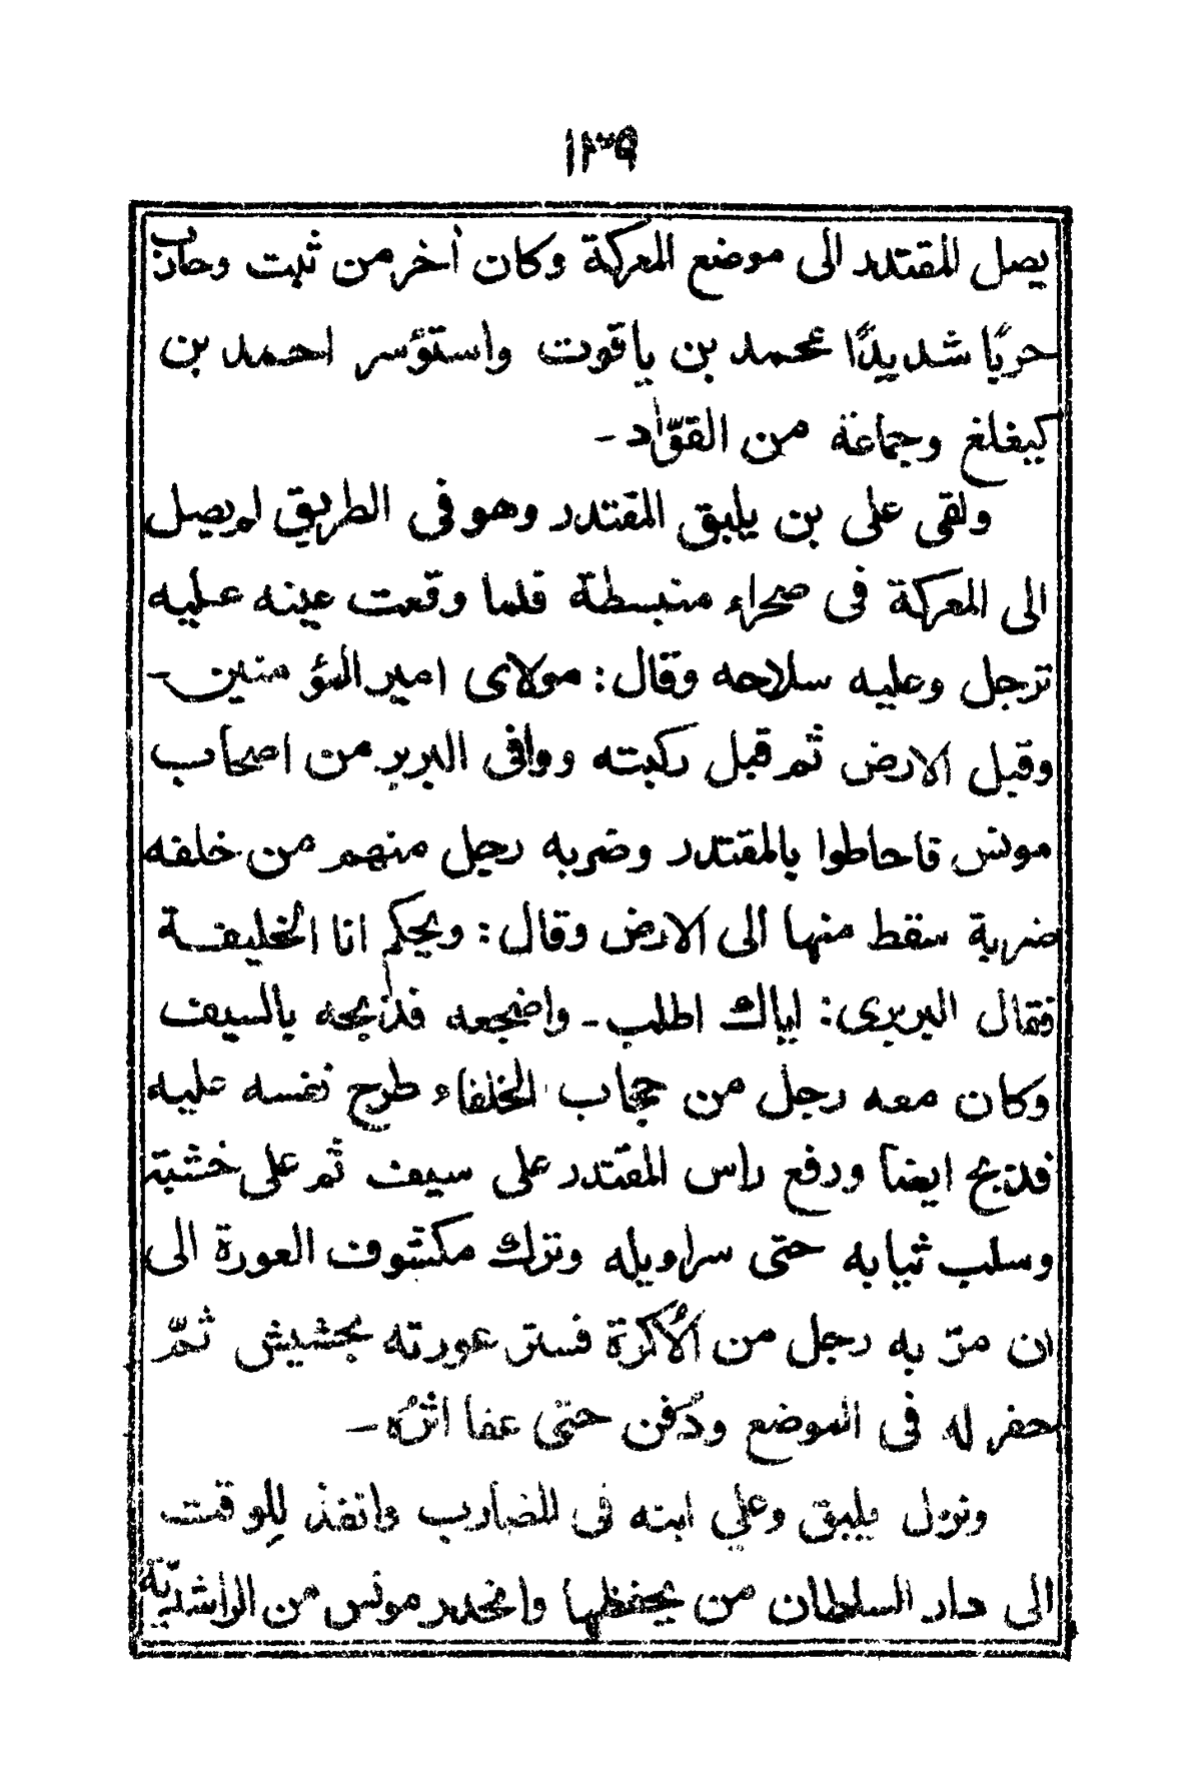 ١٣٩
يصل المقتدر الى موضع المعركة وكان آخر من ثبت وحارب
حربًا شديدًا محمد بن ياقوت واستؤسر احمد بن
كيغلغ وجماعة من القوّاد-
ولقى على بن يلبق المقتدر وهو فى الطريق لم يصل
الى المعركة فى صحراء منبسطة فلما وقعت عينه عليه
ترجل وعليه سلاحه وقال: مولاى امير المؤمنين-
وقبل الارض ثم قبل ركبته ووافى البربر من اصحاب
مونس فاحاطوا بالمقتدر وضربه رجل منهم من خلفه
ضربة سقط منها الى الارض وقال: ويحكم انا الخليفة
فقال البربرى: اياك اطلب- واضجعه فذبحه بالسيف
وكان معه رجل من حجاب الخلفاء طرح نفسه عليه
فذبح ايضاً ورفع راس المقتدر على سيف ثم على خشبة
وسلب ثيابه حتى سراويله وترك مكشوف العورة الى
ان مرّ به رجل من الأُكرة فستر عورته بحشيش ثمّ
حفر له فى الموضع ودُفن حتى عفا اثرُه-
ونزل يلبق وعلي ابنه فى المضارب وانفذ لِلوقت
الى دار السلطان من يحفظها وانحدر مونس من الراشديّة